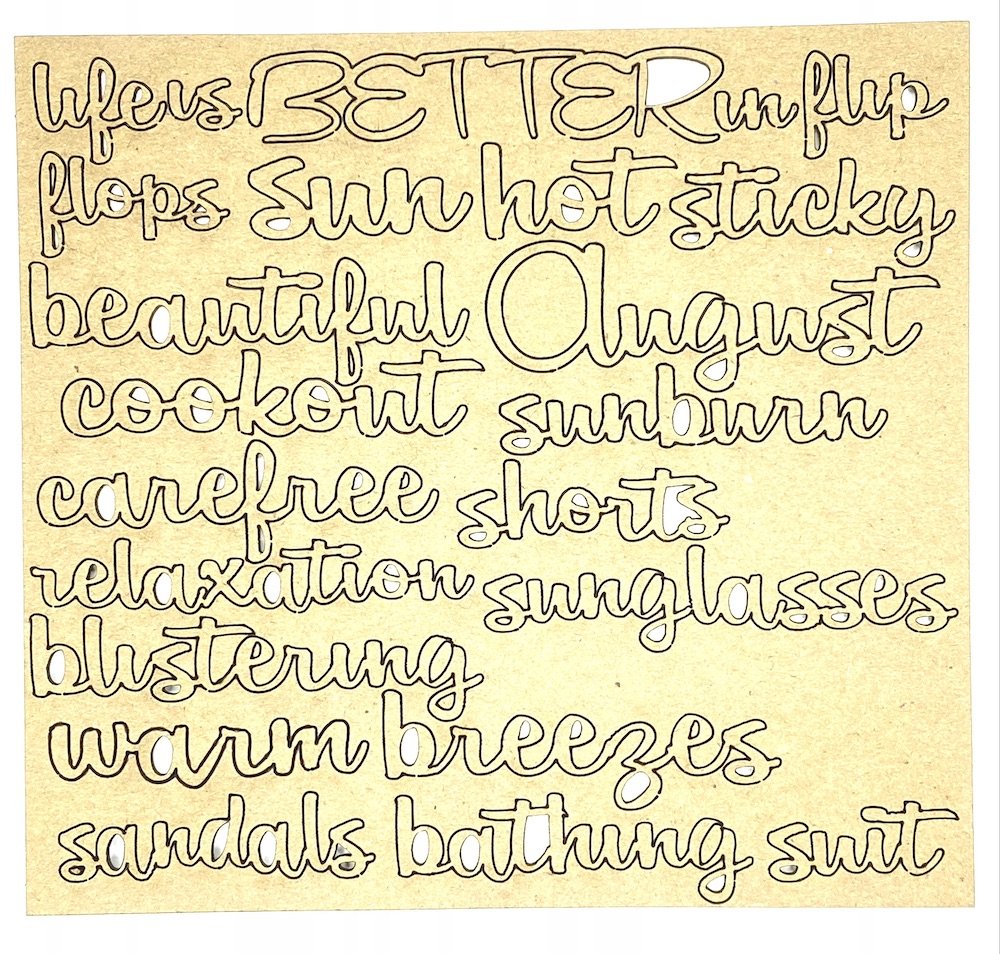 life is BETTER in flip
flops Sun hot sticky
beautiful August
cookout sunburn
carefree shorts
relaxation sunglasses
blistering
warm breezes
sandals bathing suit